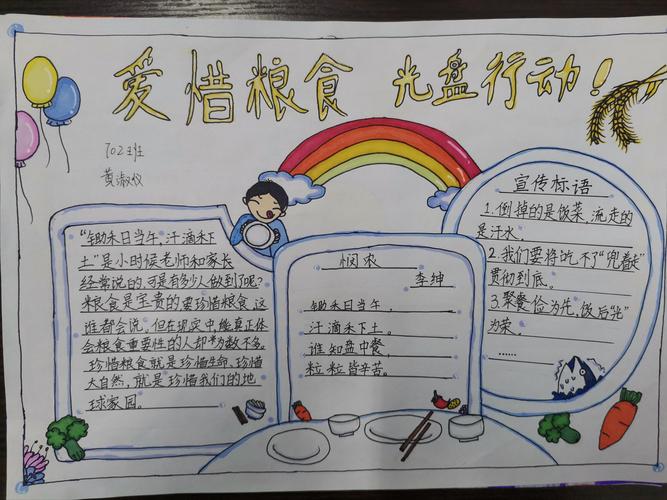 爱惜粮食 光盘行动！
702班
黄淑仪
“锄禾日当午，汗滴禾下
土”是小时候老师和家长
经常说的，可是有多少人做到了呢？
粮食是宝贵的要珍惜粮食，这
谁都会说，但在现实中，能真正体
会粮食重要性的人却为数不多。
珍惜粮食就是珍惜生命，珍惜
大自然，就是珍惜我们的地
球家园。
悯农
李坤
锄禾日当午，
汗滴禾下土。
谁知盘中餐，
粒粒皆辛苦。
宣传标语
1.倒掉的是饭菜，流走的
是汗水。
2.我们要将吃不了“兜着走”
贯彻到底。
3.聚餐俭为先，饭后“光”
为荣。
……